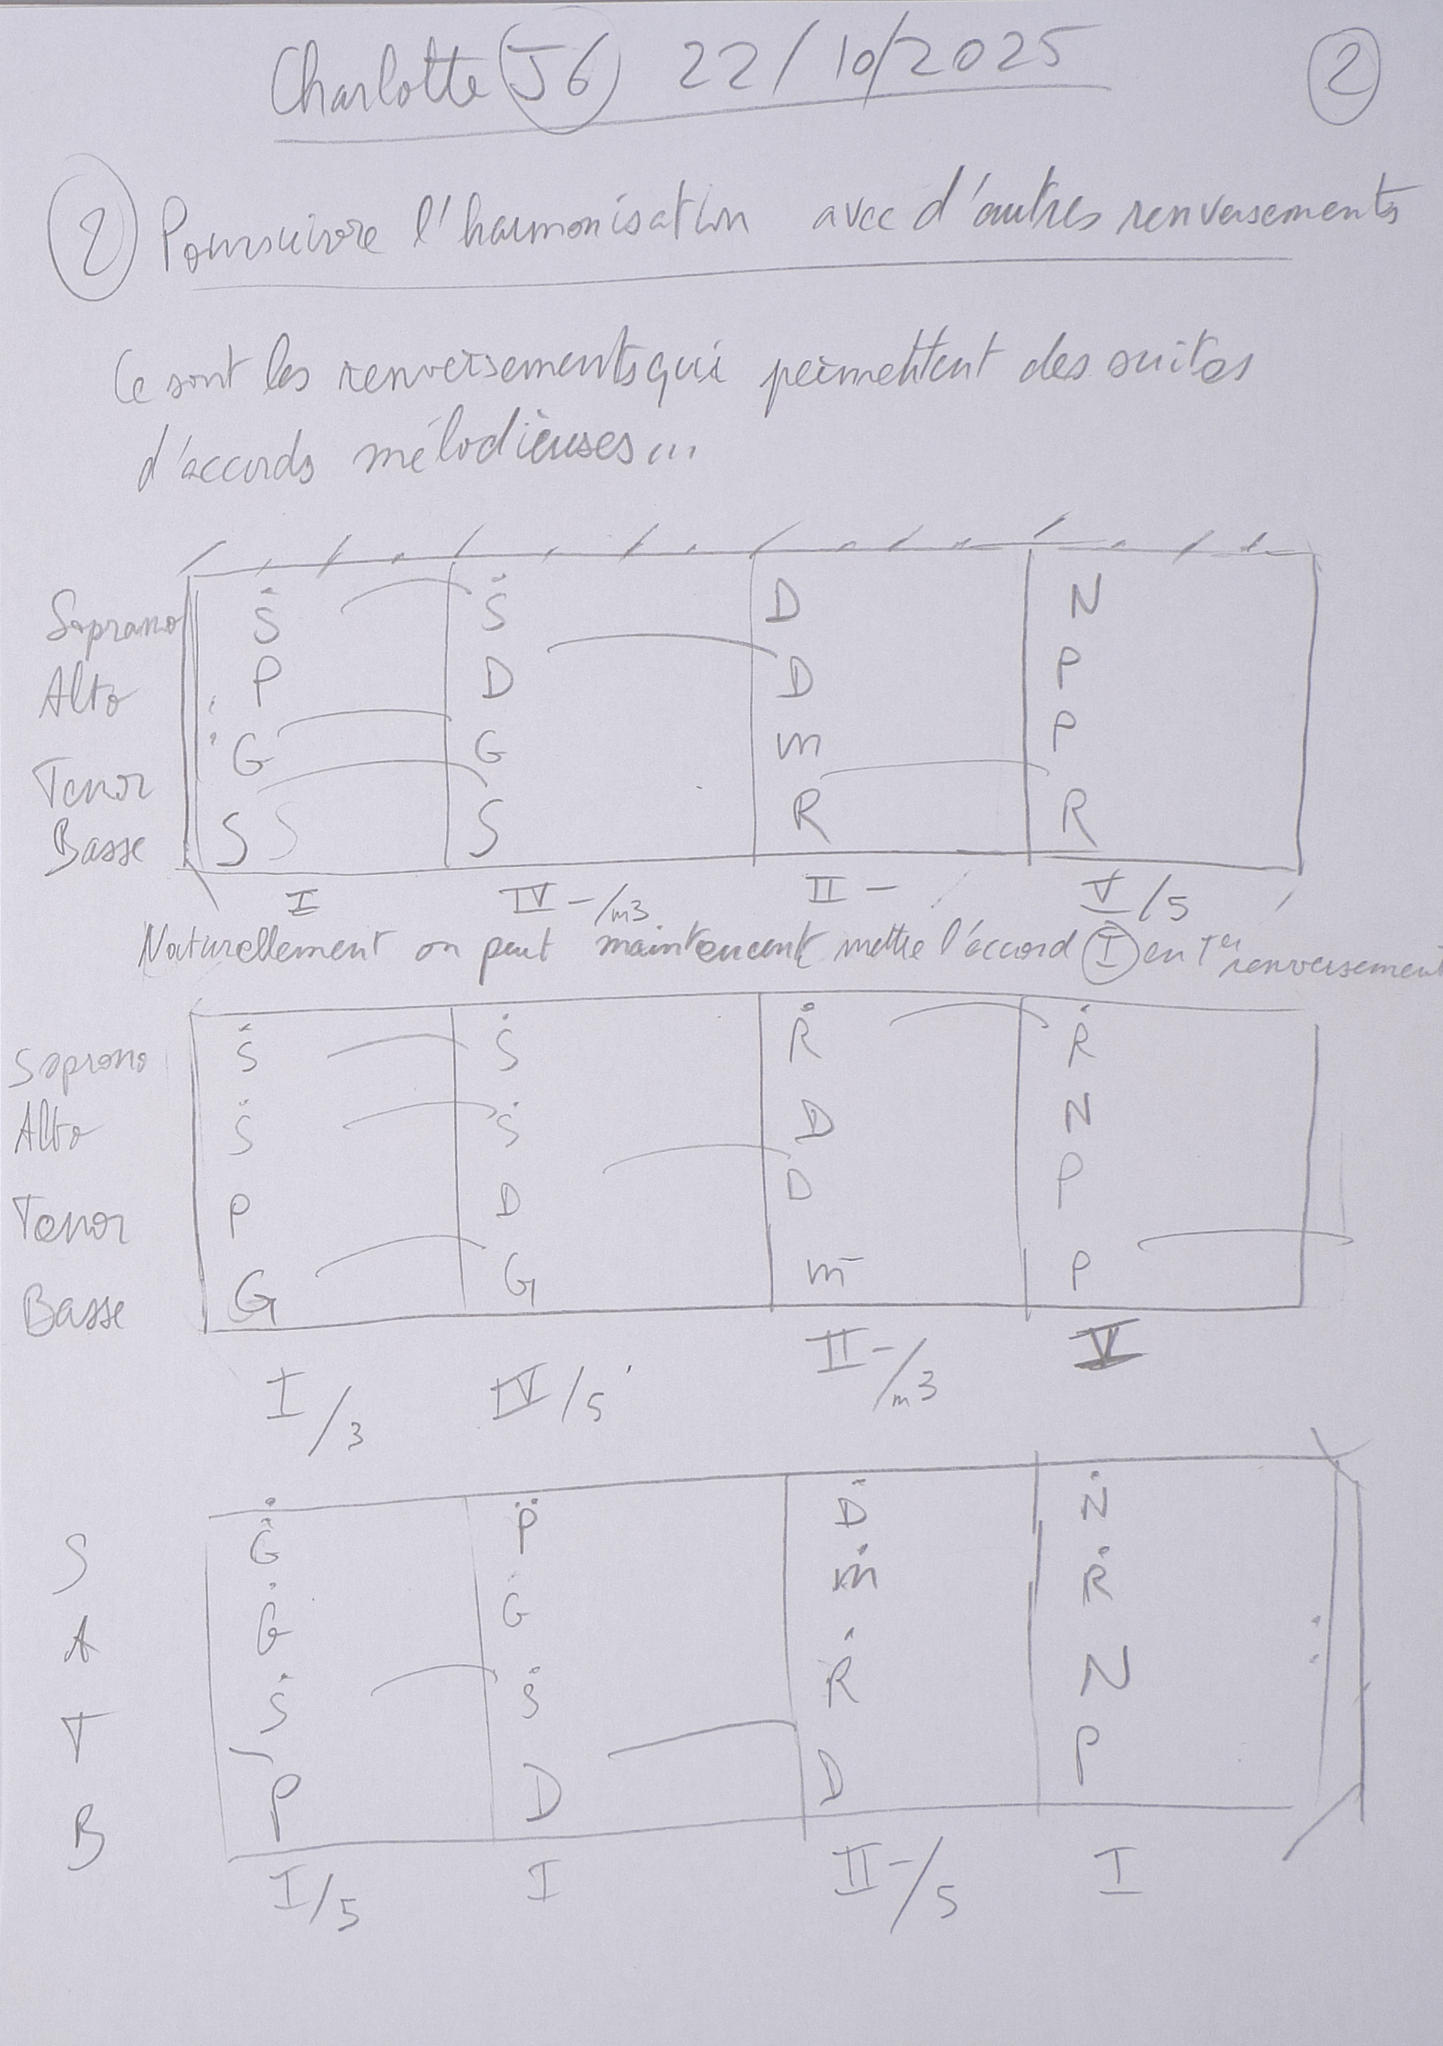 Charlotte J6 22/10/2025 2
2 Poursuivre l'harmonisation avec d'autres renversements
Ce sont les renversements qui permettent des suites
d'accords mélodieuses...
Soprano Ṡ Ṡ D N
Alto P D D P
Tenor G G m P
Basse S S S R R
I IV-/m3 II- V/5
Naturellement on peut maintenant mettre l'accord I en 1er renversement
Soprano Ṡ Ṡ Ṙ Ṙ
Alto Ṡ Ṡ D N
Tenor P D D P
Basse G G m P
I/3 IV/5 II-/m3 V
S G̈ P̈ Ḋ Ṅ
A Ġ Ġ ṁ Ṙ
T Ṡ Ṡ Ṙ N
B P D D P
I/5 I II-/5 I